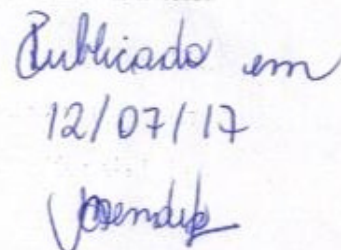 Publicado em
12/07/17